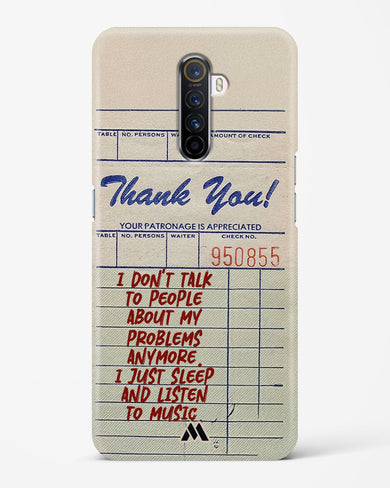 TABLE NO. PERSONS WA AMOUNT OF CHECK
Thank You!
YOUR PATRONAGE IS APPRECIATED
TABLE NO. PERSONS WAITER CHECK NO.
950855
I DON'T TALK
TO PEOPLE
ABOUT MY
PROBLEMS
ANYMORE.
I JUST SLEEP
AND LISTEN
TO MUSIC